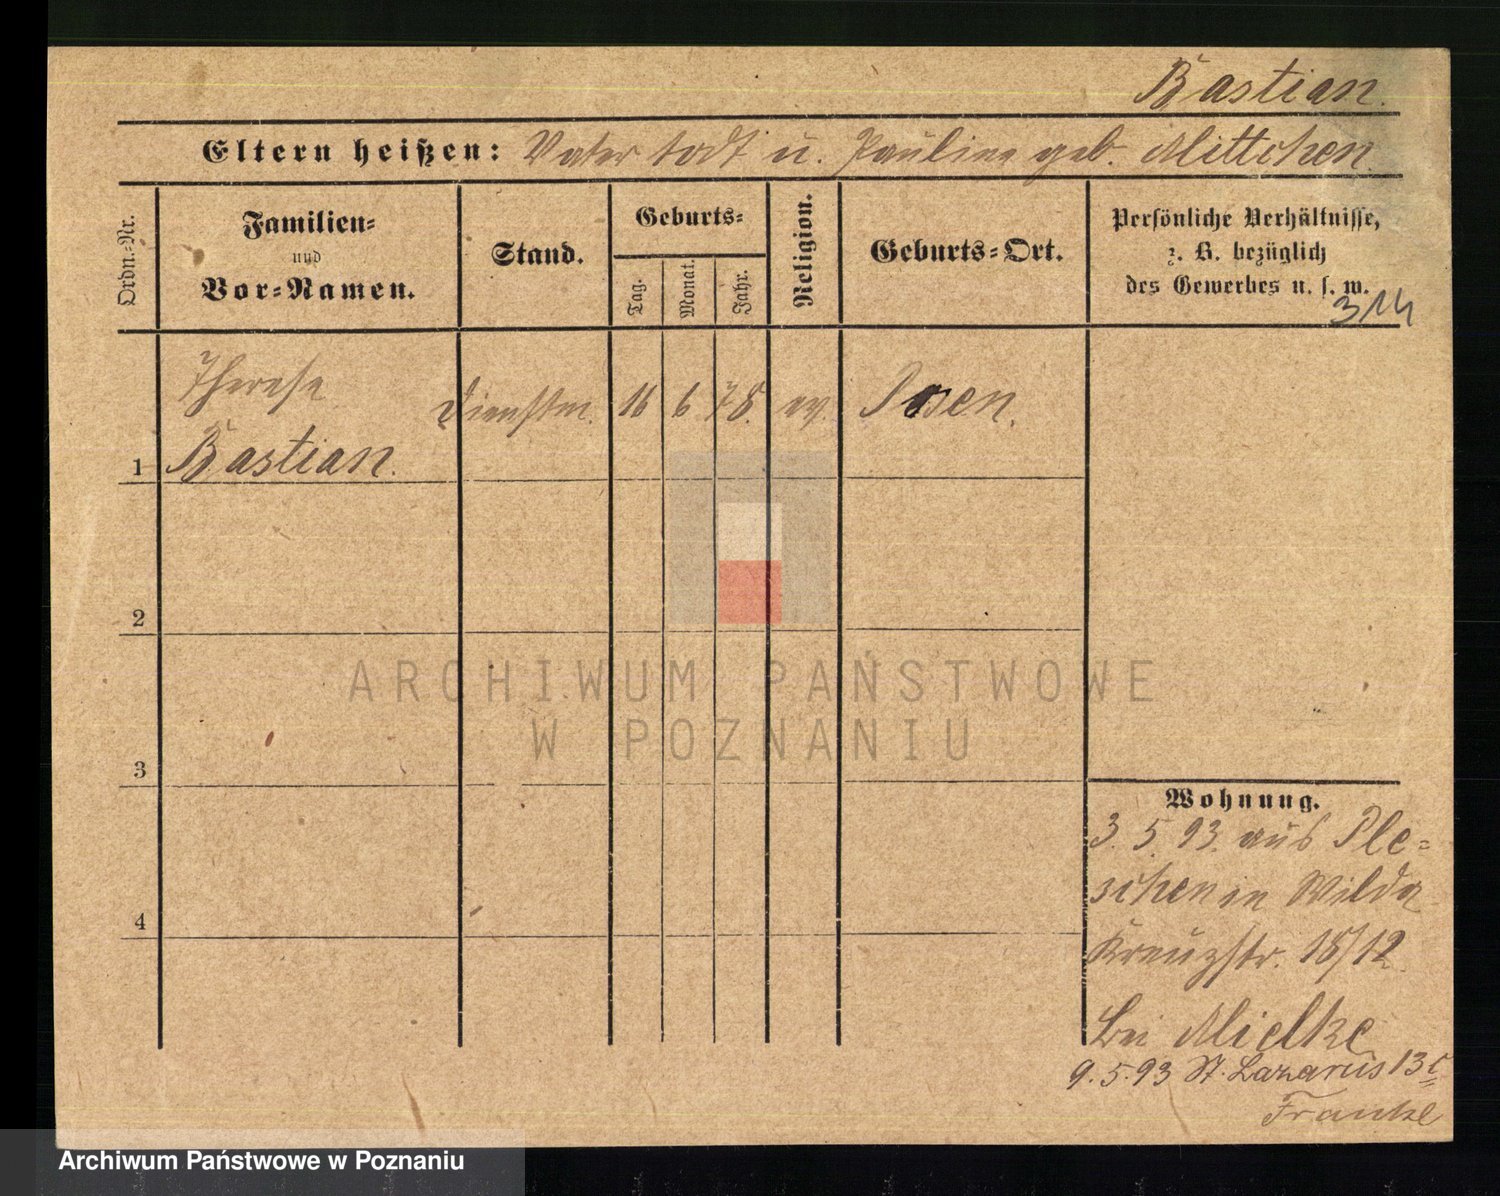 Bastian.
Eltern heißen: Vater todt u. Pauline geb. Mittchen.
Ordn.-Nr.
Familien-
und
Vor-Namen.
Stand.
Geburts-
Tag.
Monat.
Jahr.
Religion.
Geburts-Ort.
Persönliche Verhältnisse,
z. B. bezüglich
des Gewerbes u. s. w.
314
1
Therese
Bastian.
Dienstm.
16
6
78.
ev.
Posen.
2
3
4
ARCHIWUM PAŃSTWOWE
W POZNANIU
Wohnung.
3. 5. 93. aus Ple-
schen in Wilda
Kreuzstr. 18/12
bei Mielke
9.5.93 St. Lazarus 13c
Franke
Archiwum Państwowe w Poznaniu